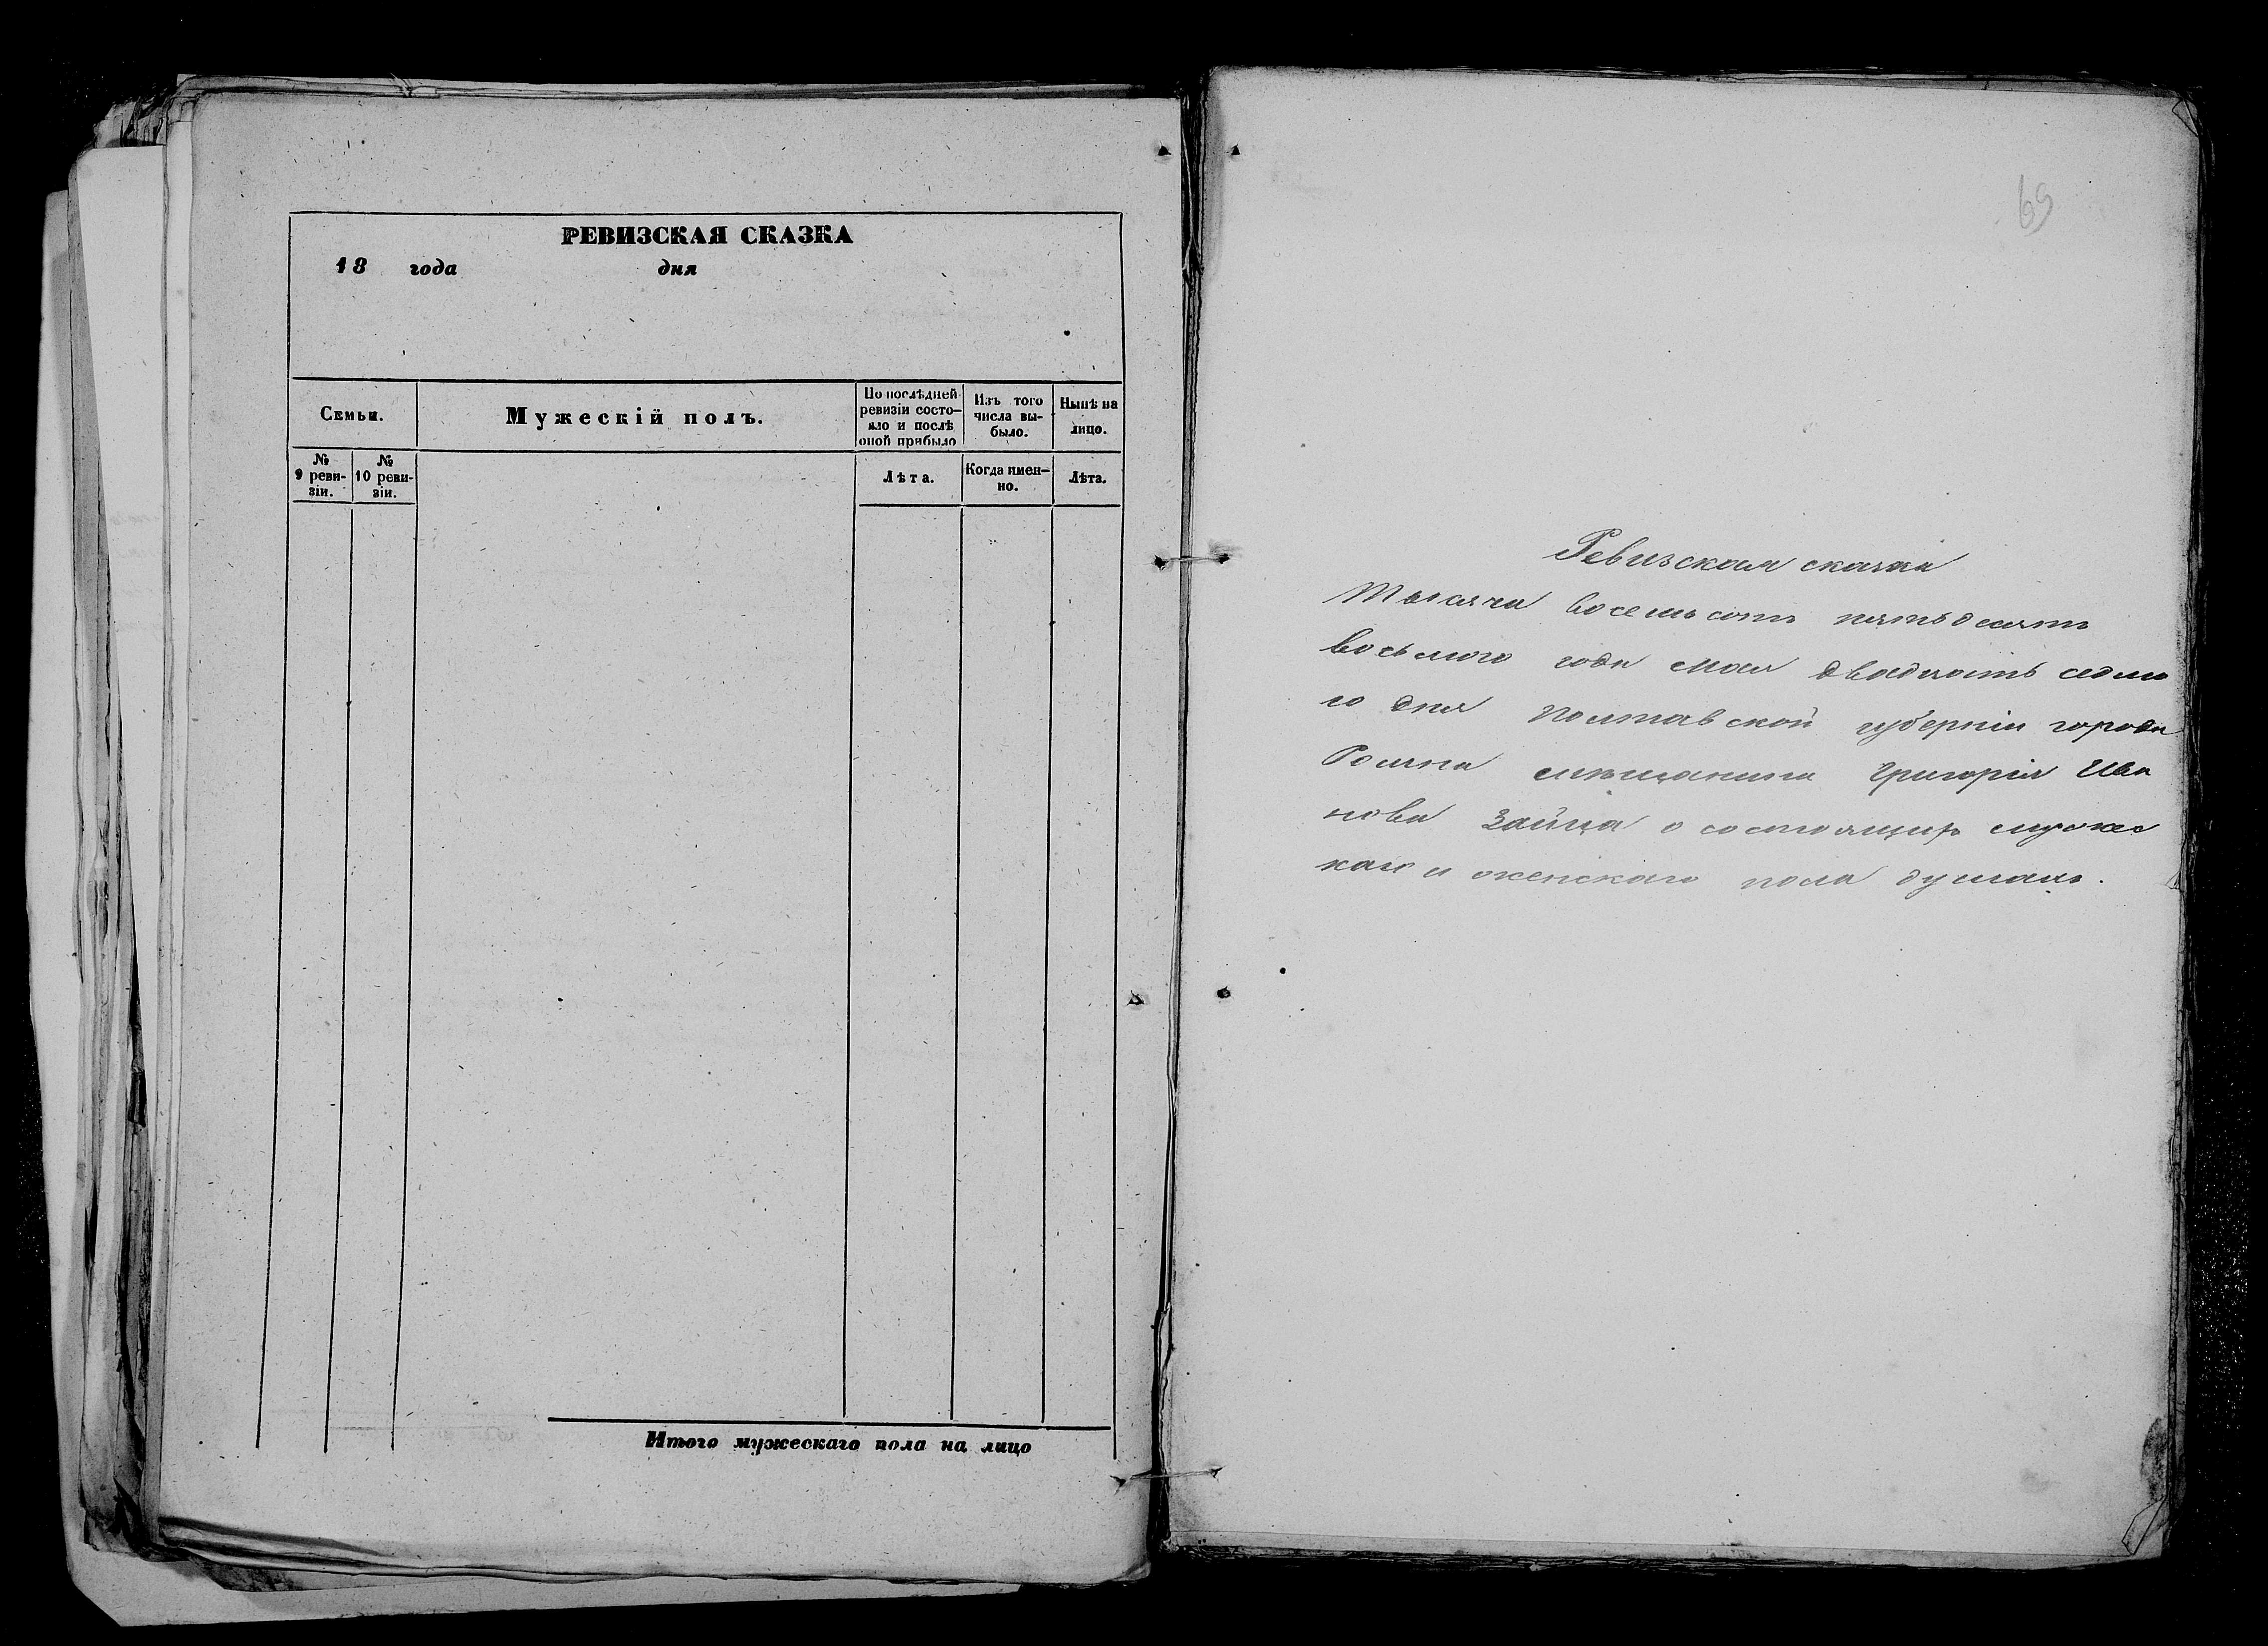 РЕВИЗСКАЯ СКАЗКА
18 года дня
Семьи.
Мужескій полъ.
По послѣдней
ревизіи состо-
яло и послѣ
оной прибыло
Изъ того
числа вы-
было.
Нынѣ на
лицо.
№
9 реви-
зіи.
№
10 реви-
зіи.
Лѣта.
Когда имен-
но.
Лѣта.
Итого мужескаго пола на лицо
69
Ревизская сказка
Тысяча восемьсотъ пятьдесятъ
восьмого года мая двадцать седмо
го дня Полтавской губерніи города
Ромна мѣщанина Григорія Ива
нова Зайца о состоящихъ мужес
каго и женскаго пола душахъ.